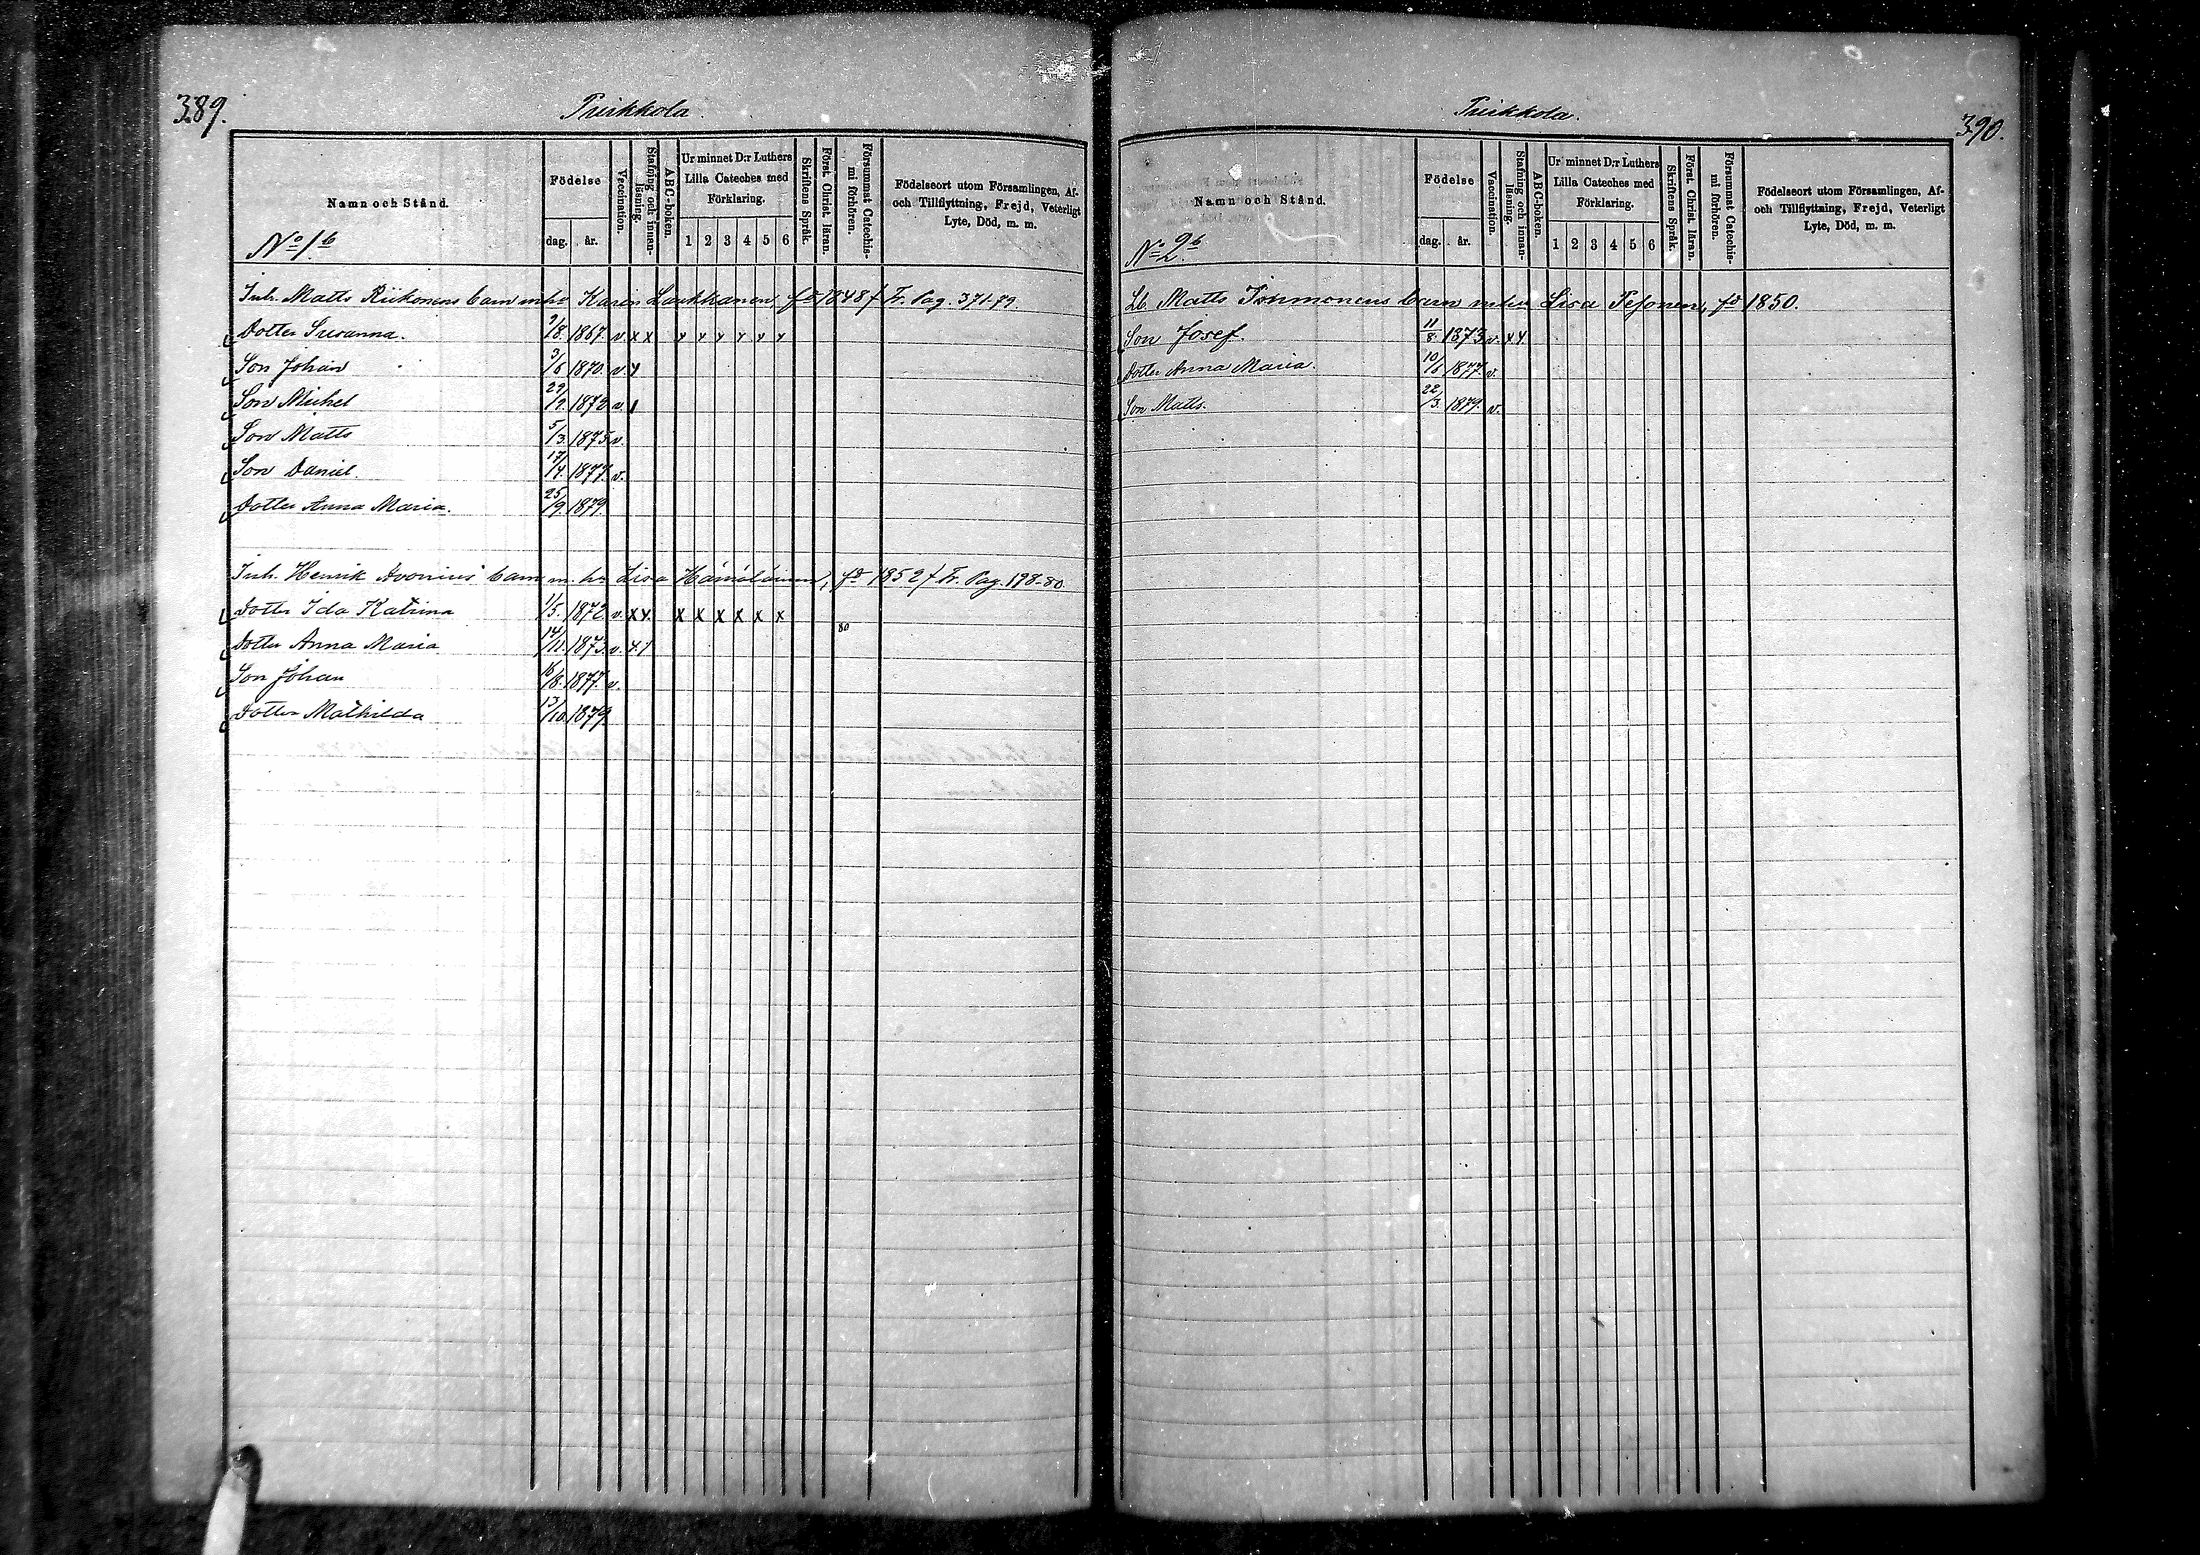 389.
Puikkola.
Namn och Stånd.
Födelse
dag. år.
Vaccination.
Stafning och innan-
läsning.
ABC-boken.
Ur minnet D:r Luthers
Lilla Cateches med
Förklaring.
1 2 3 4 5 6
Skriftens Språk.
Först. Christ. läran.
Försummat Catechis-
mi förhören.
Födelseort utom Församlingen, Af-
och Tillflyttning, Frejd, Veterligt
Lyte, Död, m. m.
No 1.b
Inh. Matts Riikonens barn m. hu Karin Laukkanen, fd 1848 f. Fr. Pag. 371-79.
Dotter Susanna. 2/8. 1867. v. x x y y y y y y
Son Johan 3/6 1870. v. y
Son Michel 29/12. 1872 v. 1
Son Matts 5/3. 1875 v.
Son Daniel. 17/4. 1877. v.
Dotter Anna Maria. 25/9. 1879.
Inh. Henrik Avonius' barn m. hu Lisa, fd 1852 f. Fr. Pag. 198-80
Dotter Ida Katrina 1/5. 1872. v. x y. x x x x x x
80
Dotter Anna Maria 14/11. 1873. v. y y
Son Johan 16/8. 1877. v.
Dotter Mathilda 13/10. 1879.
390.
Puikkola.
Namn och Stånd.
Födelse
dag. år.
Vaccination.
Stafning och innan-
läsning.
ABC-boken.
Ur minnet D:r Luthers
Lilla Cateches med
Förklaring.
1 2 3 4 5 6
Skriftens Språk.
Först. Christ. läran.
Försummat Catechis-
mi förhören.
Födelseort utom Församlingen, Af-
och Tillflyttning, Frejd, Veterligt
Lyte, Död, m. m.
No 2.b
Lb. Matts Tohmonens barn m hu Lisa Pesonen, fd 1850.
Son Josef. 11/8. 1873 v. x y
Dotter Anna Maria. 10/6 1877. v.
Son Matts. 22/3. 1879. v.